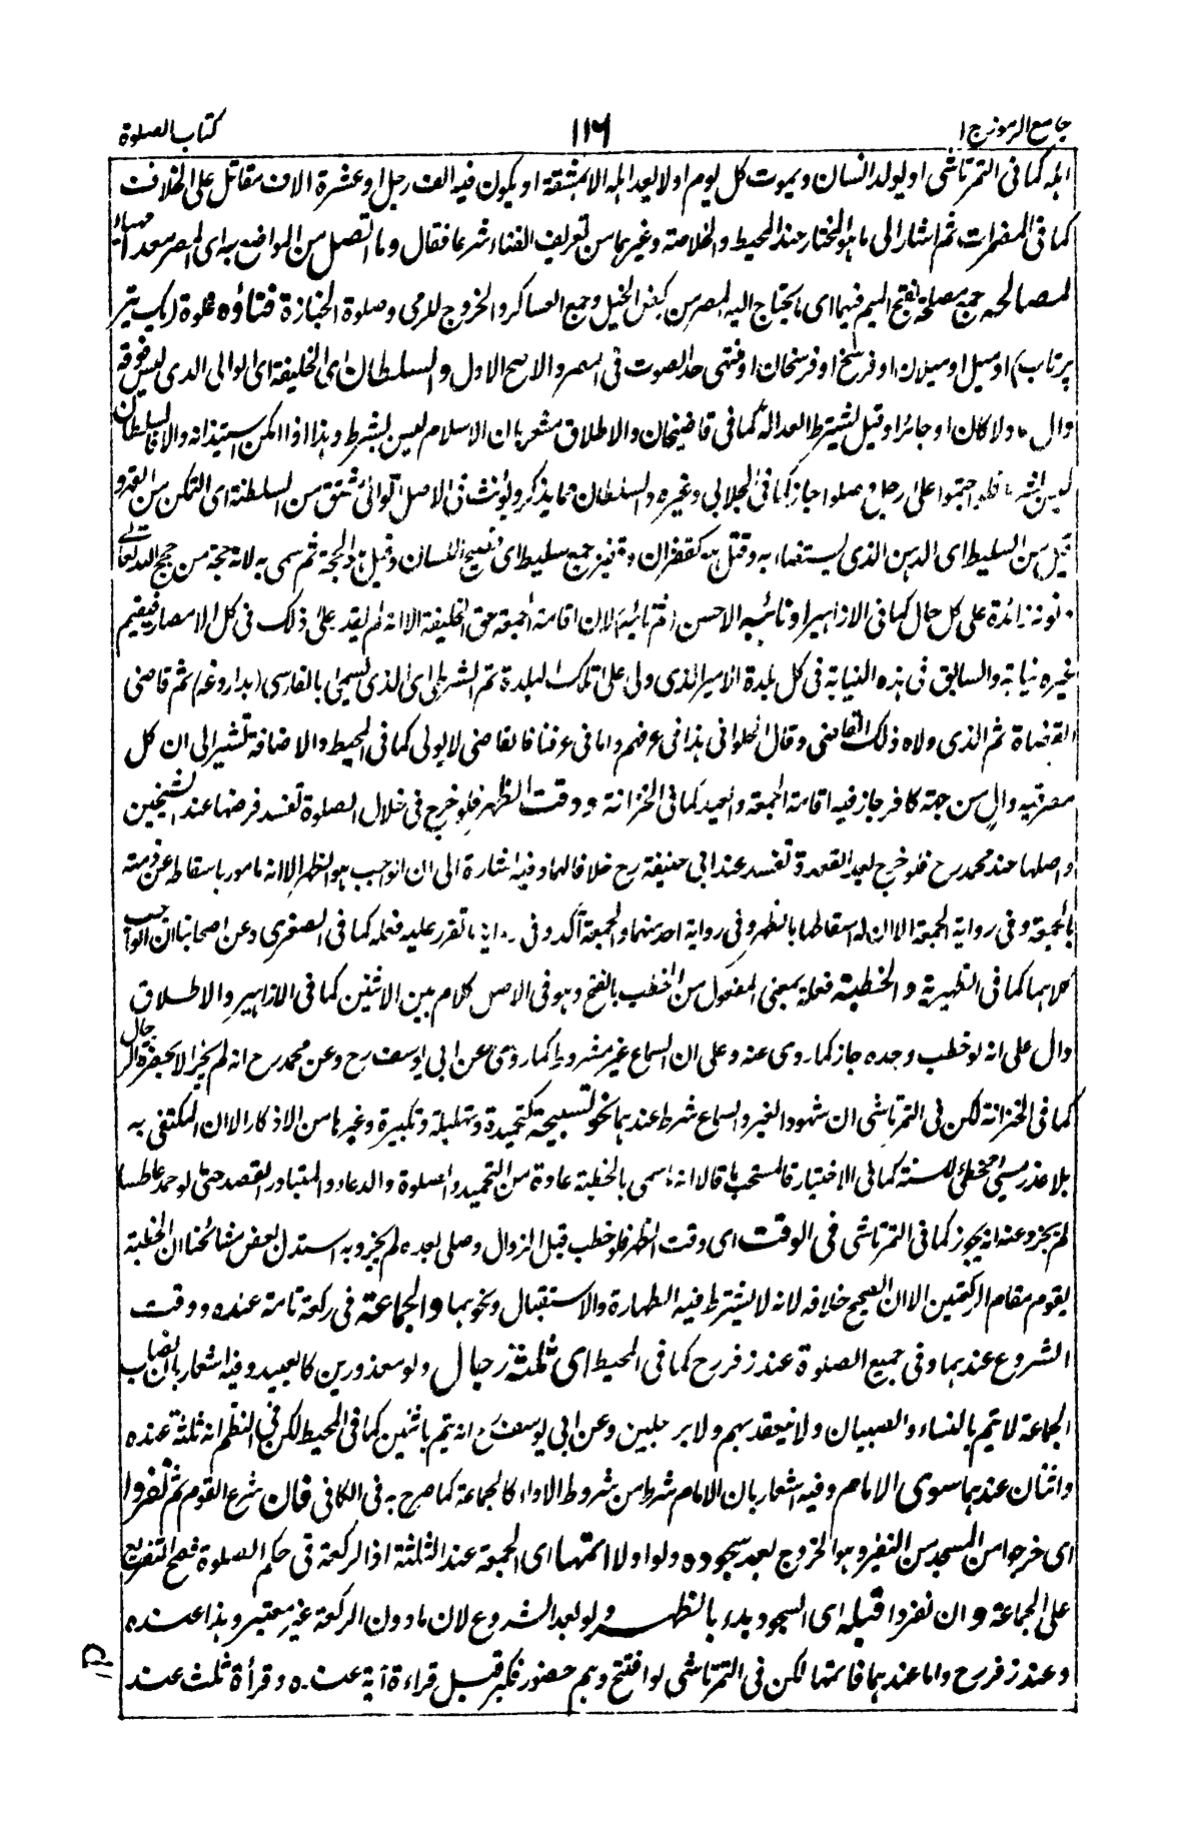 جامع الرموز ج ١ ١١٦ كتاب الصلوة
اہلہ كما فى التمرتاشى او يولد انسان ويموت كل يوم او لا يعد اہلہ الا بمشقة او يكون فيه الف رجل او عشرة الاف مقاتل على الخلاف
كما فى المضمرات ثم اشار الى ما هو المختار عند المحيط والخلاصة وغيرهما من تعريف الفناء شرعا فقال وما اتصل من المواضع به اى المصر معدا مهيأ
لمصالحه جمع مصلحة بفتح الميم فيهما اى ما يحتاج اليه المصر من ركض الخيل وجمع العساكر والخروج للرمى وصلوة الجنازة فناؤه غلوة (يك تير
پرتاب) او ميل او ميلان او فرسخ او فرسخان او منتهى حد الصوت فى المصر والاصح الاول والسلطان اى الخليفة اى الوالى الذى ليس فوقه
وال عادلا كان او جائرا وقيل يشترط العدالة كما فى قاضيخان والاطلاق مشعر بان الاسلام ليس بشرط وهذا اذا امكن استيذانه والا فالسلطان
ليس بشرط فلو اجتمعوا على رجل وصلوا جاز كما فى الجلابى وغيره والسلطان مما يذكر ويؤنث فى الاصل اتوالى مشتق من السلطنة اى التمكن من القهر و
قيل من السليط اى الدهن الذى يستضاء به وقيل كقفزان وقفيز جمع سليط اى فصيح اللسان وقيل الحجة ثم سمى به لانه حجة من حجج الله تعالى
نونه زائدة على كل حال كما فى الازاهير او نائبه الاحسن فنائبه لان اقامة الجمعة حق الخليفة الا انه لم يقدر على ذلك فى كل الامصار فيقيم
غيره نيابة والسابق فى هذه النيابة فى كل بلدة الامير الذى ولى على تلك البلدة ثم الشرطى اى الذى يسمى بالفارسى (بداروغه) ثم قاضى
القضاة ثم الذى ولاه ذلك القاضى وقال الحلوانى هذا فى عرفهم واما فى عرفنا فالقاضى لا يولى كما فى المحيط والاضافة تشير الى ان كل
مصر فيه وال من جهة كافر جاز فيه اقامة الجمعة والعيد كما فى الخزانة ووقت الظهر فلو خرج فى خلال الصلوة تفسد فرضها عند الشيخين
واصلها عند محمد رح فلو خرج بعد القعدة تفسد عند ابى حنيفة رح خلافا لهما وفيه اشارة الى ان الواجب هو الظهر الا انه مامور باسقاطه عن ذمته
بالجمعة وفى رواية الجمعة الا ان له اسقاطها بالظهر وفى رواية احدهما والجمعة آكد وفى رواية ما تقرر عليه فعله كما فى الصغرى وعن اصحابنا ان الواجب
كلاهما كما فى الظهيرية والخطبة فعلة بمعنى المفعول من الخطب بالفتح وهو فى الاصل كلام بين الاثنين كما فى الازاهير والاطلاق
دال على انه لو خطب وحده جاز كما روى عنه وعلى ان السماع غير مشروط كما روى عن ابى يوسف رح وعن محمد رح انه لم يجز الا بحضرة الرجال
كما فى الخزانة لكن فى التمرتاشى ان شهود الغير والسماع شرط عندهما نحو تسبيحة كتحميدة وتهليلة وتكبيرة وغيرها من الاذكار الا ان المكتفى به
بلا عذر مسيئ مخطئ للسنة كما فى الاختيار فالمستحب ما قالا انه ما سمى بالخطبة عادة من التحميد والصلوة والدعاء والمتبادر القصد حتى لو حمد عاطسا
لم يجز وعنه انه يجوز كما فى التمرتاشى فى الوقت اى وقت الظهر فلو خطب قبل الزوال وصلى بعده لم يجز وبه استدل بعض مشائخنا ان الخطبة
يقوم مقام الركعتين الا ان الصحيح خلافه لانه لا يشترط فيه الطهارة والاستقبال ونحوهما والجماعة فى ركعة تامة عنده ووقت
الشروع عندهما وفى جميع الصلوة عند زفر رح كما فى المحيط اى ثلثة رجال ولو معذورين كالعبيد وفيه اشعار بان نصاب
الجماعة لا يتم بالنساء والصبيان ولا ينعقد بهم ولا برجلين وعن ابى يوسف رح انه يتم باثنين كما فى المحيط لكن فى النظم انه ثلثة عنده
واثنان عندهما سوى الامام وفيه اشعار بان الامام شرط من شروط الاداء كالجماعة كما صرح به فى الكافى فان شرع القوم ثم نفروا
اى خرجوا من المسجد من النفر وهو الخروج بعد سجوده ولو اولا اتمها اى الجمعة عند الثلثة اذ الركعة فى حكم الصلوة فصح التفريع
على الجماعة وان نفروا قبله اى السجود بدء بالظهر ولو بعد الشروع لان ما دون الركعة غير معتبر وهذا عنده
وعند زفر رح واما عندهما فاتمها لكن فى التمرتاشى لو افتتح وهم حضور فكبر قبل قراءة آية عنده وقرأة ثلث عند